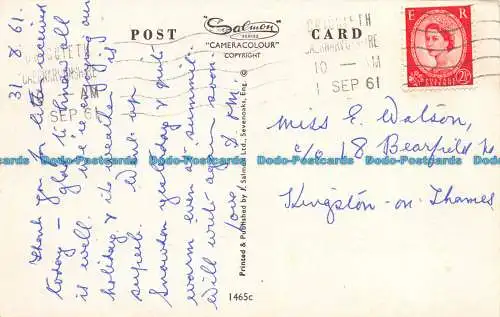 31.8.61.
Thank you for letter received
today – glad to think all
is well. We're enjoying our
holiday & the weather is
superb. Went up
Snowdon yesterday & quite
warm even at summit.
Will write again soon.
Love, J. om.
POST CARD
"Salmon"
SERIES
"CAMERACOLOUR"
COPYRIGHT
CRICCIETH
CAERNARVONSHIRE
AM
SEP 61
CRICCIETH
CAERNARVONSHIRE
10 AM
1 SEP 61
E R
POSTAGE REVENUE
2½D
Miss E. Watson,
c/o 18 Bearfield
Kingston-on-Thames
Printed & Published by J. Salmon Ltd., Sevenoaks, Eng.
1465c
Bdo-Postcards Bdo-Postcards Bdo-Postcards Bdo-Postcards Bdo-Postcards